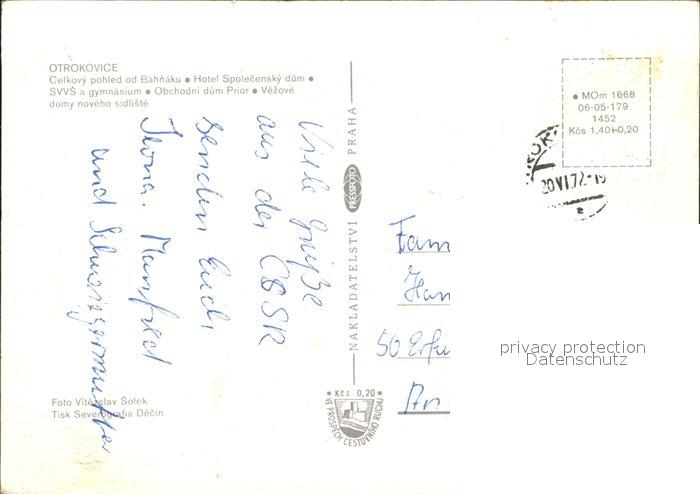 OTROKOVICE
Celkový pohled od Bahňáku • Hotel Společenský dům •
SVVŠ a gymnásium • Obchodní dům Prior • Věžové
domy nového sídliště
Viele Grüße
aus der ČSSR
senden Euch
Ilona, Manfred
und Schwiegermutter
Foto Vítězslav Šolek
Tisk Severografia Děčín
NAKLADATELSTVÍ PRESSFOTO PRAHA
Kčs 0,20
VE PROSPĚCH CESTOVNÍHO RUCHU
• MOm 1668
06-05-179
1452
Kčs 1,40+0,20
20.VI.72-19
2
Fam
Han
50 Erfu
An
privacy protection
Datenschutz